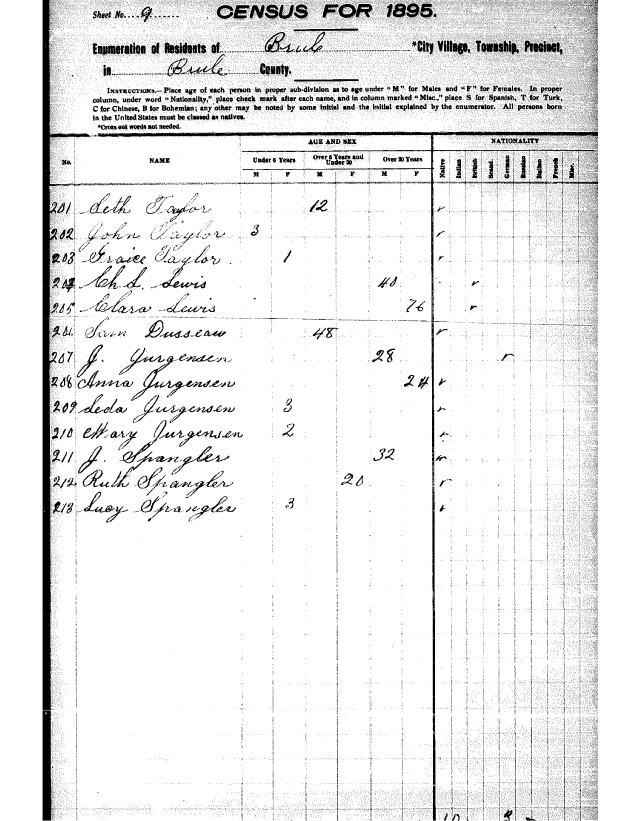 Sheet No. 9
CENSUS FOR 1895.
Enumeration of Residents of Brule *City Village, Township, Precinct,
in Brule County.
INSTRUCTIONS.— Place age of each person in proper sub-division as to age under "M" for Males and "F" for Females. In proper
column, under word "Nationality," place check mark after each name, and in column marked "Misc.," place S for Spanish, T for Turk,
C for Chinese, B for Bohemian; any other may be noted by some initial and the initial explained by the enumerator. All persons born
in the United States must be classed as natives.
*Cross out words not needed.
AGE AND SEX NATIONALITY
No. NAME Under 6 Years Over 6 Years and Under 20 Over 20 Years Native Indian British Scand. German Russian Italian French Misc.
M F M F M F
201 Seth Taylor 12
202 John Taylor 3
203 Graice Taylor 1
204 Ch S. Lewis 40
205 Clara Lewis 76
206 Sam Dusseau 48
207 J. Jurgensen 28
208 Anna Jurgensen 24
209 Leda Jurgensen 3
210 Mary Jurgensen 2
211 J. Spangler 32
212 Ruth Spangler 20
213 Lucy Spangler 3